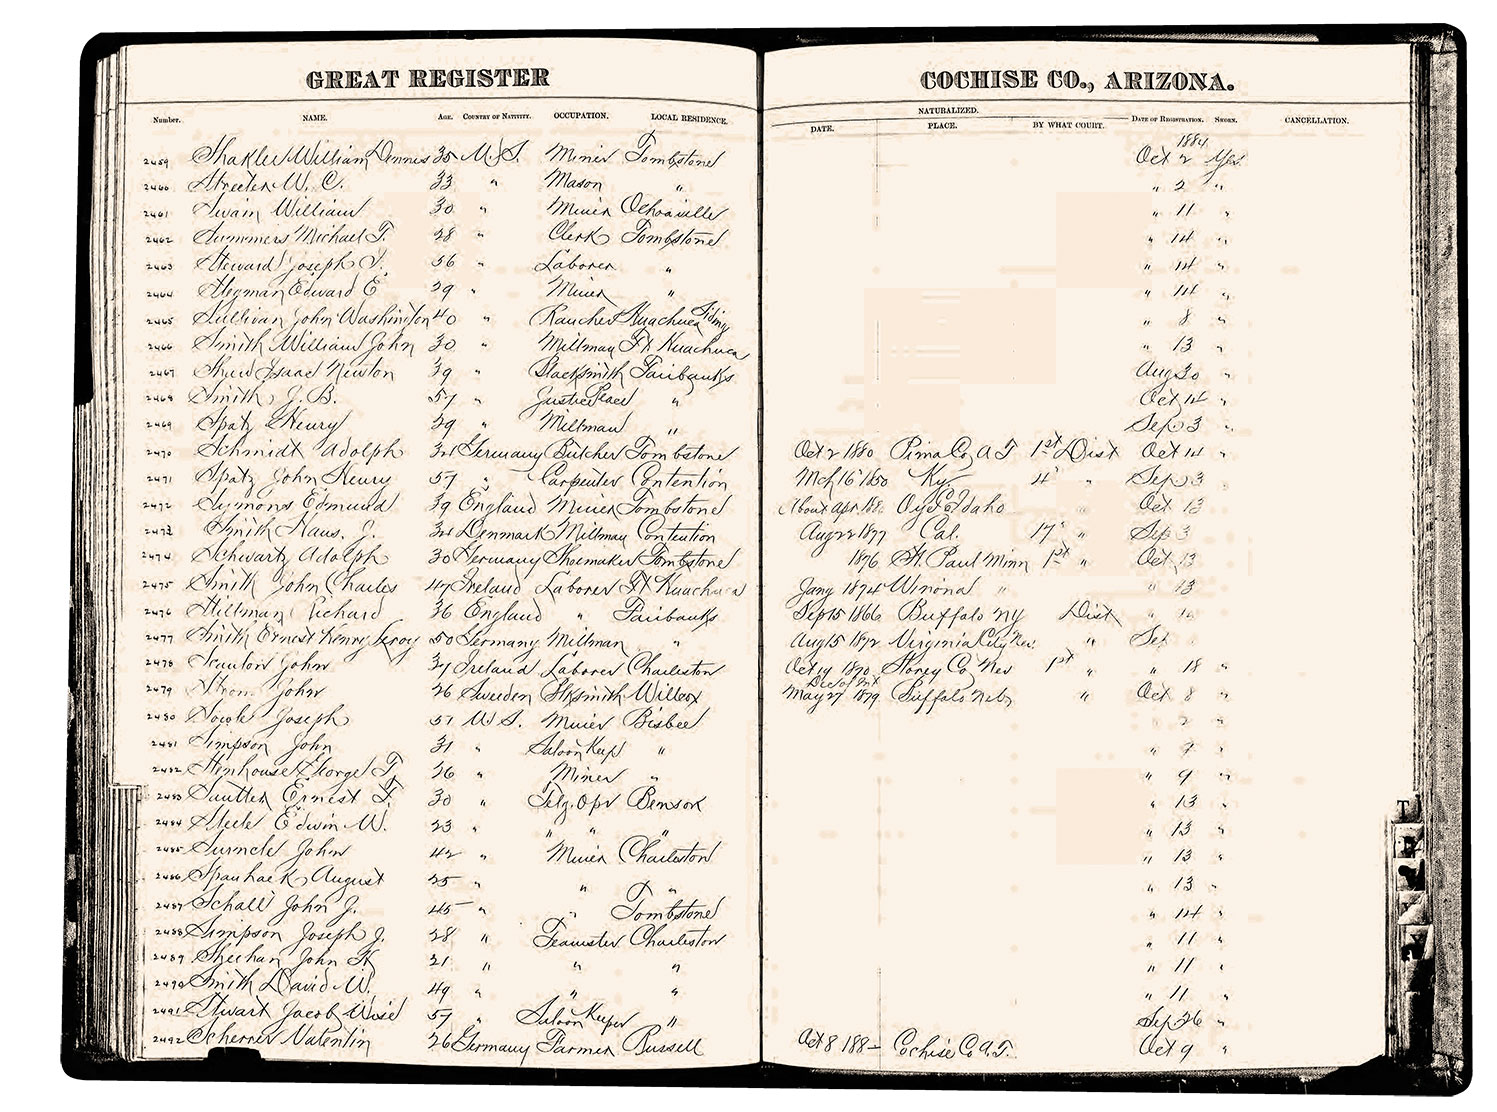 GREAT REGISTER COCHISE CO., ARIZONA.
Number. NAME. AGE. COUNTRY OF NATIVITY. OCCUPATION. LOCAL RESIDENCE. NATURALIZED. DATE. PLACE. BY WHAT COURT. DATE OF REGISTRATION. SWORN. CANCELLATION.
1884
2459 Shakler William Dennis 35 U.S. Miner Tombstone Oct 2 Yes
2460 Streeter W. C. 33 " Mason " " 2 "
2461 Swain William 30 " Miner Ochoaville " 11 "
2462 Summers Michael T. 28 " Clerk Tombstone " 14 "
2463 Steward Joseph 56 " Laborer " " 14 "
2464 Stegman Edward E 29 " Miner " " 14 "
2465 Sullivan John Washington 40 " Rancher Huachuca Siding " 8 "
2466 Smith William John 30 " Millman Ft Huachuca " 13 "
2467 Shaw Isaac Newton 39 " Blacksmith Fairbanks Aug 30 "
2468 Smith J. B. 57 " Justice Peace " Oct 14 "
2469 Spatz Henry 29 " Millman " Sep 3 "
2470 Schmidt Adolph Germany Butcher Tombstone Oct 2 1880 Pima Co A T 1st Dist Oct 14 "
2471 Spatz John Henry 57 " Carpenter Contention Mch 16 1850 Ky. 4" " Sep 3 "
2472 Symons Edmund 39 England Miner Tombstone About Apr 188 Idaho Oct 13
2473 Smith Hans. J. Denmark Millman Contention Aug 22 1877 Cal. 17" " Sep 3
2474 Schwartz Adolph 30 Germany Shoemaker Tombstone 1876 St. Paul Minn 1st " Oct 13
2475 Smith John Charles 47 Ireland Laborer Ft Huachuca Jany 1874 Winona " " 13
2476 Stillman Richard 36 England " Fairbanks Sep 15 1866 Buffalo NY Dist "
2477 Smith Ernest Henry Leroy 50 Germany Millman " Aug 15 1872 Virginia City Nev. " Sep
2478 Scanlon John Ireland Laborer Charleston Oct 19 1870 Storey Co Nev 1st " " 18 "
2479 Strom John 26 Sweden Blksmith Willcox May 27 1879 Suffalo Neb " Oct 8 "
2480 Joseph 51 U.S. Miner Bisbee " 2 "
2481 Simpson John 31 " Saloon Keep " " 7 "
2482 Stenhouse George T. 26 " Miner " " 9 "
2483 Sautter Ernest F. 30 " Telg. Opr Benson " 13 "
2484 Steele Edwin W. 23 " " " " " 13 "
2485 John 42 " Miner Charleston " 13 "
2486 Spanhack August 25 " " " " 13 "
2487 Schall John J. 45 " " Tombstone " 14 "
2488 Simpson Joseph J. 28 " Teamster Charleston " 11 "
2489 Sheehan John H 21 " " " " 11 "
2490 Smith David W. 49 " " " " 11 "
2491 Stewart Jacob Wise 57 " Saloon Keeper " Sep 26 "
2492 Scherrer Valentin 26 Germany Farmer Russell Oct 8 188– Cochise Co A.T. Oct 9 "
T